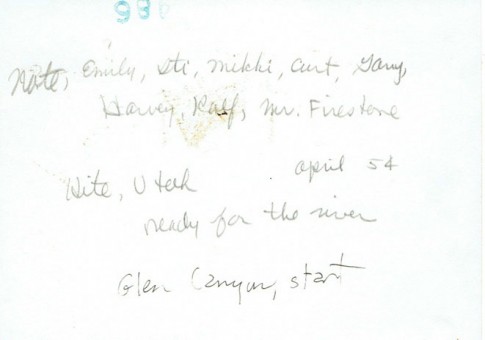 986
Nate, Emily, Sti, Mikki, Curt, Gary,
Harvey, Ralf, Mr. Firestone
Hite, Utah april 54
ready for the river
Glen Canyon, start